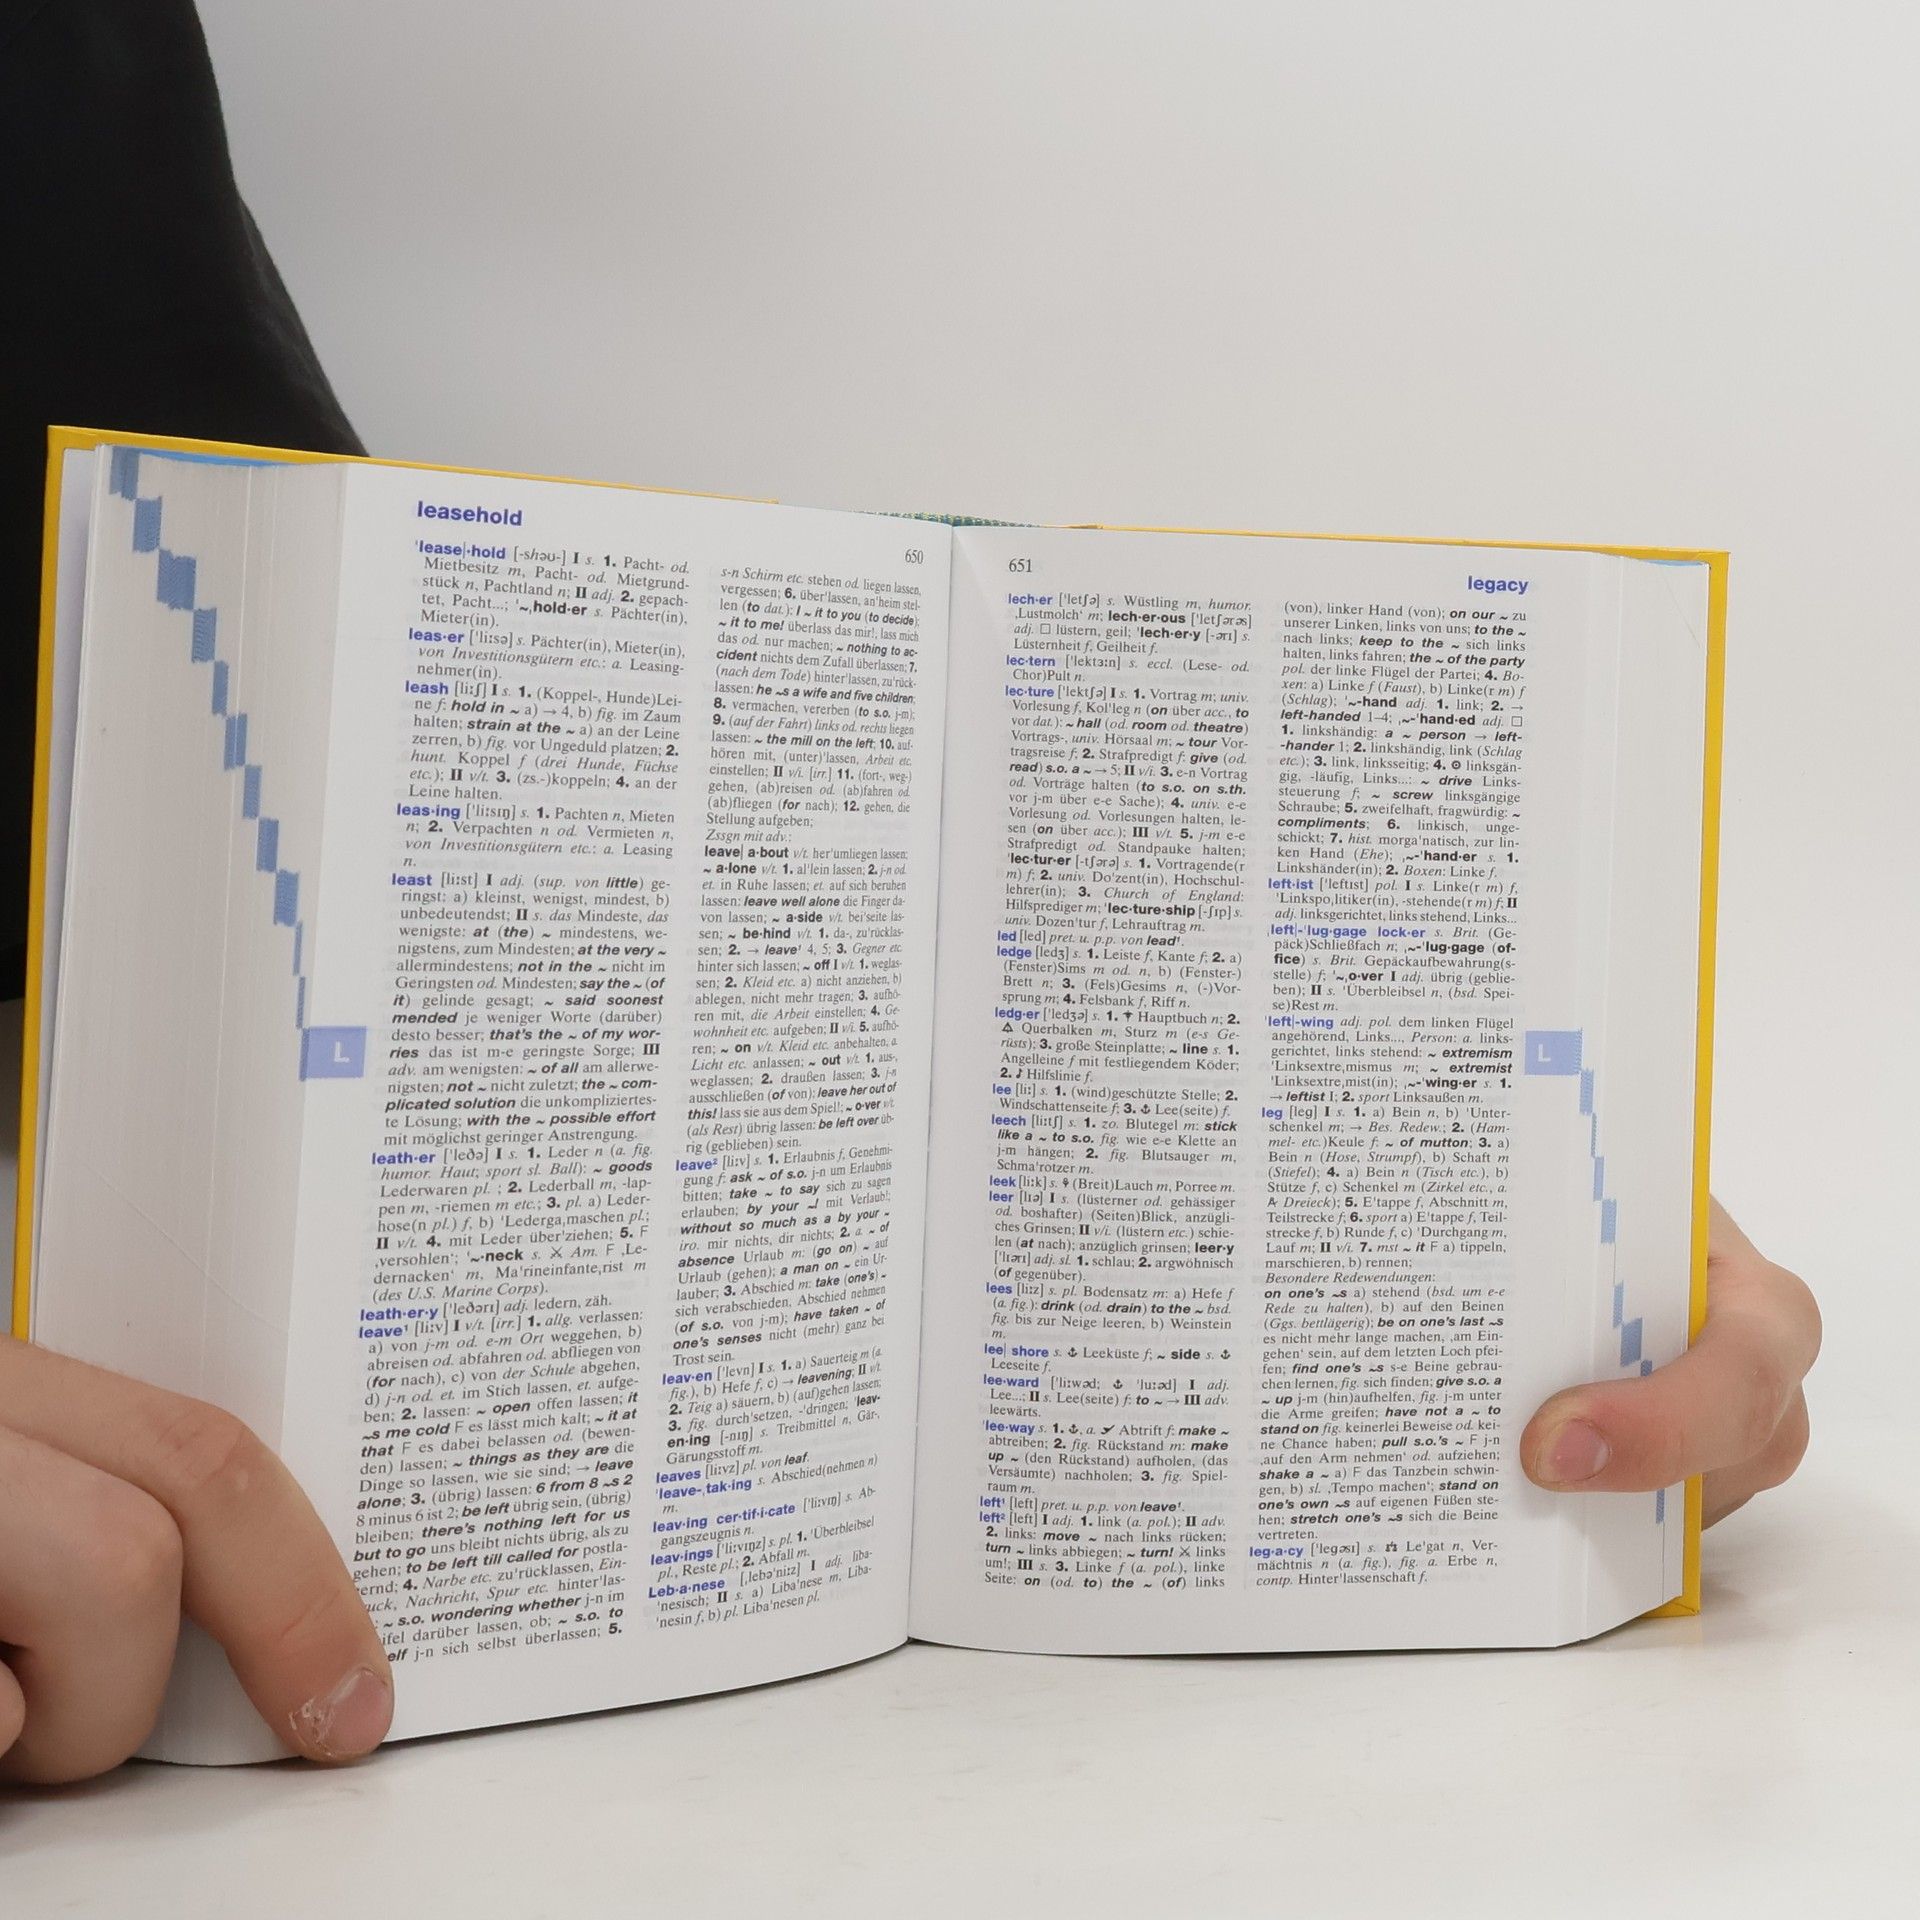 leasehold
650
'lease|·hold [-shəʊ-] I s. 1. Pacht- od.
Mietbesitz m, Pacht- od. Mietgrund-
stück n, Pachtland n; II adj. 2. gepach-
tet, Pacht...; '~,hold·er s. Pächter(in),
Mieter(in).
leas·er ['liːsə] s. Pächter(in), Mieter(in),
von Investitionsgütern etc.: a. Leasing-
nehmer(in).
leash [liːʃ] I s. 1. (Koppel-, Hunde)Lei-
ne f: hold in ~ a) → 4, b) fig. im Zaum
halten; strain at the ~ a) an der Leine
zerren, b) fig. vor Ungeduld platzen; 2.
hunt. Koppel f (drei Hunde, Füchse
etc.); II v/t. 3. (zs.-)koppeln; 4. an der
Leine halten.
leas·ing ['liːsɪŋ] s. 1. Pachten n, Mieten
n; 2. Verpachten n od. Vermieten n,
von Investitionsgütern etc.: a. Leasing
n.
least [liːst] I adj. (sup. von little) ge-
ringst: a) kleinst, wenigst, mindest, b)
unbedeutendst; II s. das Mindeste, das
wenigste: at (the) ~ mindestens, we-
nigstens, zum Mindesten; at the very ~
allermindestens; not in the ~ nicht im
Geringsten od. Mindesten; say the ~ (of
it) gelinde gesagt; ~ said soonest
mended je weniger Worte (darüber)
desto besser; that's the ~ of my wor-
ries das ist m-e geringste Sorge; III
adv. am wenigsten: ~ of all am allerwe-
nigsten; not ~ nicht zuletzt; the ~ com-
plicated solution die unkompliziertes-
te Lösung; with the ~ possible effort
mit möglichst geringer Anstrengung.
leath·er ['leðə] I s. 1. Leder n (a. fig.
humor. Haut; sport sl. Ball): ~ goods
Lederwaren pl. ; 2. Lederball m, -lap-
pen m, -riemen m etc.; 3. pl. a) Leder-
hose(n pl.) f, b) 'Lederga,maschen pl.;
II v/t. 4. mit Leder über'ziehen; 5. F
‚versohlen'; '~-neck s. ⚔ Am. F ‚Le-
dernacken' m, Ma'rineinfante,rist m
(des U.S. Marine Corps).
leath·er·y ['leðərɪ] adj. ledern, zäh.
leave¹ [liːv] I v/t. [irr.] 1. allg. verlassen:
a) von j-m od. e-m Ort weggehen, b)
abreisen od. abfahren od. abfliegen von
(for nach), c) von der Schule abgehen,
d) j-n od. et. im Stich lassen, et. aufge-
ben; 2. lassen: ~ open offen lassen; it
~s me cold F es lässt mich kalt; ~ it at
that F es dabei belassen od. (bewen-
den) lassen; ~ things as they are die
Dinge so lassen, wie sie sind; → leave
alone; 3. (übrig) lassen: 6 from 8 ~s 2
8 minus 6 ist 2; be left übrig sein, (übrig)
bleiben; there's nothing left for us
but to go uns bleibt nichts übrig, als zu
gehen; to be left till called for postla-
gernd; 4. Narbe etc. zu'rücklassen, Ein-
Nachricht, Spur etc. hinter'las-
~ s.o. wondering whether j-n im
darüber lassen, ob; ~ s.o. to
j-n sich selbst überlassen; 5.
s-n Schirm etc. stehen od. liegen lassen,
vergessen; 6. über'lassen, an'heim stel-
len (to dat.): I ~ it to you (to decide);
~ it to me! überlass das mir!, lass mich
das od. nur machen; ~ nothing to ac-
cident nichts dem Zufall überlassen; 7.
(nach dem Tode) hinter'lassen, zu'rück-
lassen: he ~s a wife and five children;
8. vermachen, vererben (to s.o. j-m);
9. (auf der Fahrt) links od. rechts liegen
lassen: ~ the mill on the left; 10. auf-
hören mit, (unter)'lassen, Arbeit etc.
einstellen; II v/i. [irr.] 11. (fort-, weg-)
gehen, (ab)reisen od. (ab)fahren od.
(ab)fliegen (for nach); 12. gehen, die
Stellung aufgeben;
Zssgn mit adv.:
leave| a·bout v/t. her'umliegen lassen;
~ a·lone v/t. 1. al'lein lassen; 2. j-n od.
et. in Ruhe lassen; et. auf sich beruhen
lassen: leave well alone die Finger da-
von lassen; ~ a·side v/t. bei'seite las-
sen; ~ be·hind v/t. 1. da-, zu'rücklas-
sen; 2. → leave¹ 4, 5; 3. Gegner etc.
hinter sich lassen; ~ off I v/t. 1. weglas-
sen; 2. Kleid etc. a) nicht anziehen, b)
ablegen, nicht mehr tragen; 3. aufhö-
ren mit, die Arbeit einstellen; 4. Ge-
wohnheit etc. aufgeben; II v/i. 5. aufhö-
ren; ~ on v/t. Kleid etc. anbehalten, a.
Licht etc. anlassen; ~ out v/t. 1. aus-,
weglassen; 2. draußen lassen; 3. j-n
ausschließen (of von); leave her out of
this! lass sie aus dem Spiel!; ~ o·ver v/t.
(als Rest) übrig lassen: be left over üb-
rig (geblieben) sein.
leave² [liːv] s. 1. Erlaubnis f, Genehmi-
gung f: ask ~ of s.o. j-n um Erlaubnis
bitten; take ~ to say sich zu sagen
erlauben; by your ~! mit Verlaub!;
without so much as a by your ~
iro. mir nichts, dir nichts; 2. a. ~ of
absence Urlaub m: (go on) ~ auf
Urlaub (gehen); a man on ~ ein Ur-
lauber; 3. Abschied m: take (one's) ~
sich verabschieden, Abschied nehmen
(of s.o. von j-m); have taken ~ of
one's senses nicht (mehr) ganz bei
Trost sein.
leav·en ['levn] I s. 1. a) Sauerteig m (a.
fig.), b) Hefe f, c) → leavening; II v/t.
2. Teig a) säuern, b) (auf)gehen lassen;
3. fig. durch'setzen, -'dringen; 'leav-
en·ing [-nɪŋ] s. Treibmittel n, Gär-,
Gärungsstoff m.
leaves [liːvz] pl. von leaf.
'leave-,tak·ing s. Abschied(nehmen n)
m.
leav·ing cer·tif·i·cate ['liːvɪŋ] s. Ab-
gangszeugnis n.
leav·ings ['liːvɪŋz] s. pl. 1. 'Überbleibsel
pl., Reste pl.; 2. Abfall m.
Leb·a·nese [,lebə'niːz] I adj. liba-
'nesisch; II s. a) Liba'nese m, Liba-
'nesin f, b) pl. Liba'nesen pl.
L
651
legacy
lech·er ['letʃə] s. Wüstling m, humor.
‚Lustmolch' m; lech·er·ous ['letʃərəs]
adj. □ lüstern, geil; 'lech·er·y [-ərɪ] s.
Lüsternheit f, Geilheit f.
lec·tern ['lektɜːn] s. eccl. (Lese- od.
Chor)Pult n.
lec·ture ['lektʃə] I s. 1. Vortrag m; univ.
Vorlesung f, Kol'leg n (on über acc., to
vor dat.): ~ hall (od. room od. theatre)
Vortrags-, univ. Hörsaal m; ~ tour Vor-
tragsreise f; 2. Strafpredigt f: give (od.
read) s.o. a ~ → 5; II v/i. 3. e-n Vortrag
od. Vorträge halten (to s.o. on s.th.
vor j-m über e-e Sache); 4. univ. e-e
Vorlesung od. Vorlesungen halten, le-
sen (on über acc.); III v/t. 5. j-m e-e
Strafpredigt od. Standpauke halten;
'lec·tur·er [-tʃərə] s. 1. Vortragende(r
m) f; 2. univ. Do'zent(in), Hochschul-
lehrer(in); 3. Church of England:
Hilfsprediger m; 'lec·ture·ship [-ʃɪp] s.
univ. Dozen'tur f, Lehrauftrag m.
led [led] pret. u. p.p. von lead¹.
ledge [ledʒ] s. 1. Leiste f, Kante f; 2. a)
(Fenster)Sims m od. n, b) (Fenster-)
Brett n; 3. (Fels)Gesims n, (-)Vor-
sprung m; 4. Felsbank f, Riff n.
ledg·er ['ledʒə] s. 1. ✝ Hauptbuch n; 2.
△ Querbalken m, Sturz m (e-s Ge-
rüsts); 3. große Steinplatte; ~ line s. 1.
Angelleine f mit festliegendem Köder;
2. ♪ Hilfslinie f.
lee [liː] s. 1. (wind)geschützte Stelle; 2.
Windschattenseite f; 3. ⚓ Lee(seite) f.
leech [liːtʃ] s. 1. zo. Blutegel m: stick
like a ~ to s.o. fig. wie e-e Klette an
j-m hängen; 2. fig. Blutsauger m,
Schma'rotzer m.
leek [liːk] s. ⚘ (Breit)Lauch m, Porree m.
leer [lɪə] I s. (lüsterner od. gehässiger
od. boshafter) (Seiten)Blick, anzügli-
ches Grinsen; II v/i. (lüstern etc.) schie-
len (at nach); anzüglich grinsen; leer·y
['lɪərɪ] adj. sl. 1. schlau; 2. argwöhnisch
(of gegenüber).
lees [liːz] s. pl. Bodensatz m: a) Hefe f
(a. fig.): drink (od. drain) to the ~ bsd.
fig. bis zur Neige leeren, b) Weinstein
m.
lee| shore s. ⚓ Leeküste f; ~ side s. ⚓
Leeseite f.
lee·ward ['liːwəd; ⚓ 'luːəd] I adj.
Lee...; II s. Lee(seite) f: to ~ → III adv.
leewärts.
'lee·way s. 1. ⚓, a. ✈ Abtrift f: make ~
abtreiben; 2. fig. Rückstand m: make
up ~ (den Rückstand) aufholen, (das
Versäumte) nachholen; 3. fig. Spiel-
raum m.
left¹ [left] pret. u. p.p. von leave¹.
left² [left] I adj. 1. link (a. pol.); II adv.
2. links: move ~ nach links rücken;
turn ~ links abbiegen; ~ turn! ⚔ links
um!; III s. 3. Linke f (a. pol.), linke
Seite: on (od. to) the ~ (of) links
(von), linker Hand (von); on our ~ zu
unserer Linken, links von uns; to the ~
nach links; keep to the ~ sich links
halten, links fahren; the ~ of the party
pol. der linke Flügel der Partei; 4. Bo-
xen: a) Linke f (Faust), b) Linke(r m) f
(Schlag); '~-hand adj. 1. link; 2. →
left-handed 1–4; ,~-'hand·ed adj. □
1. linkshändig: a ~ person → left-
-hander 1; 2. linkshändig, link (Schlag
etc.); 3. link, linksseitig; 4. ⚙ linksgän-
gig, -läufig, Links...: ~ drive Links-
steuerung f; ~ screw linksgängige
Schraube; 5. zweifelhaft, fragwürdig: ~
compliments; 6. linkisch, unge-
schickt; 7. hist. morga'natisch, zur lin-
ken Hand (Ehe); ,~-'hand·er s. 1.
Linkshänder(in); 2. Boxen: Linke f.
left·ist ['leftɪst] pol. I s. Linke(r m) f,
'Linkspo,litiker(in), -stehende(r m) f; II
adj. linksgerichtet, links stehend, Links...
,left|-'lug·gage lock·er s. Brit. (Ge-
päck)Schließfach n; ,~-'lug·gage (of-
fice) s. Brit. Gepäckaufbewahrung(s-
stelle) f; '~,o·ver I adj. übrig (geblie-
ben); II s. 'Überbleibsel n, (bsd. Spei-
se)Rest m.
'left|-wing adj. pol. dem linken Flügel
angehörend, Links..., Person: a. links-
gerichtet, links stehend: ~ extremism
'Linksextre,mismus m; ~ extremist
'Linksextre,mist(in); ,~-'wing·er s. 1.
→ leftist I; 2. sport Linksaußen m.
leg [leg] I s. 1. a) Bein n, b) 'Unter-
schenkel m; → Bes. Redew.; 2. (Ham-
mel- etc.)Keule f: ~ of mutton; 3. a)
Bein n (Hose, Strumpf), b) Schaft m
(Stiefel); 4. a) Bein n (Tisch etc.), b)
Stütze f, c) Schenkel m (Zirkel etc., a.
& Dreieck); 5. E'tappe f, Abschnitt m,
Teilstrecke f; 6. sport a) E'tappe f, Teil-
strecke f, b) Runde f, c) 'Durchgang m,
Lauf m; II v/i. 7. mst ~ it F a) tippeln,
marschieren, b) rennen;
Besondere Redewendungen:
on one's ~s a) stehend (bsd. um e-e
Rede zu halten), b) auf den Beinen
(Ggs. bettlägerig); be on one's last ~s
es nicht mehr lange machen, ‚am Ein-
gehen' sein, auf dem letzten Loch pfei-
fen; find one's ~s s-e Beine gebrau-
chen lernen, fig. sich finden; give s.o. a
~ up j-m (hin)aufhelfen, fig. j-m unter
die Arme greifen; have not a ~ to
stand on fig. keinerlei Beweise od. kei-
ne Chance haben; pull s.o.'s ~ F j-n
‚auf den Arm nehmen' od. aufziehen;
shake a ~ a) F das Tanzbein schwin-
gen, b) sl. ‚Tempo machen'; stand on
one's own ~s auf eigenen Füßen ste-
hen; stretch one's ~s sich die Beine
vertreten.
leg·a·cy ['legəsɪ] s. ⚖ Le'gat n, Ver-
mächtnis n (a. fig.), fig. a. Erbe n,
contp. Hinter'lassenschaft f.
L